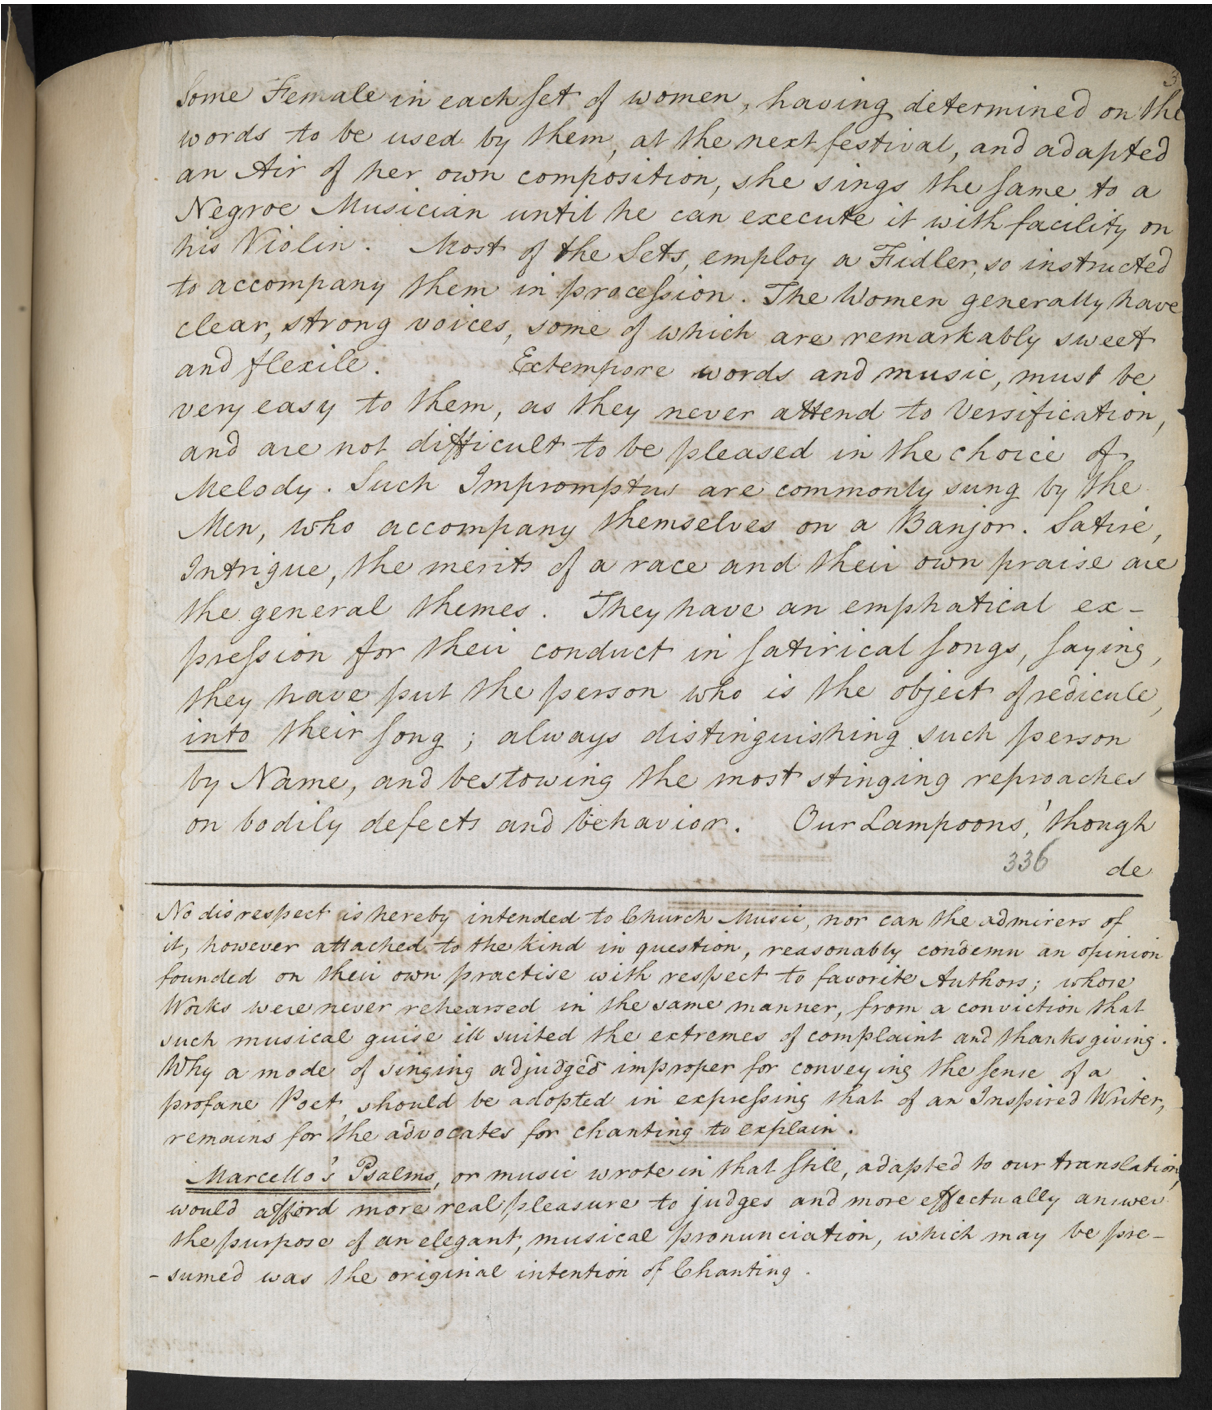 Some Female in each set of women, having determined on the
words to be used by them, at the next festival, and adapted
an Air of her own composition, she sings the same to a
Negroe Musician until he can execute it with facility on
his Violin. Most of the Sets, employ a Fidler, so instructed
to accompany them in procession. The Women generally have
clear, strong voices, some of which are remarkably sweet
and flexile. Extempore words and music, must be
very easy to them, as they never attend to Versification,
and are not difficult to be pleased in the choice of
Melody. Such Impromptus are commonly sung by the
Men, who accompany themselves on a Banjor. Satire,
Intrigue, the merits of a race and their own praise are
the general themes. They have an emphatical ex-
pression for their conduct in satirical songs, saying,
they have put the person who is the object of redicule,
into their song; always distinguishing such person
by Name, and bestowing the most stinging reproaches
on bodily defects and behavior. Our Lampoons, 'though
336 de
No disrespect is hereby intended to Church Music, nor can the admirers of
it, however attached to the kind in question, reasonably condemn an opinion
founded on their own practise with respect to favorite Authors; whose
Works were never rehearsed in the same manner, from a conviction that
such musical guise ill suited the extremes of complaint and thanksgiving.
Why a mode of singing adjudged improper for conveying the sense of a
profane Poet, should be adopted in expressing that of an Inspired Writer,
remains for the advocates for chanting to explain.
Marcello's Psalms, or music wrote in that still, adapted to our translation,
would afford more real pleasure to judges and more effectually answer
the purpose of an elegant, musical pronunciation, which may be pre-
-sumed was the original intention of Chanting.